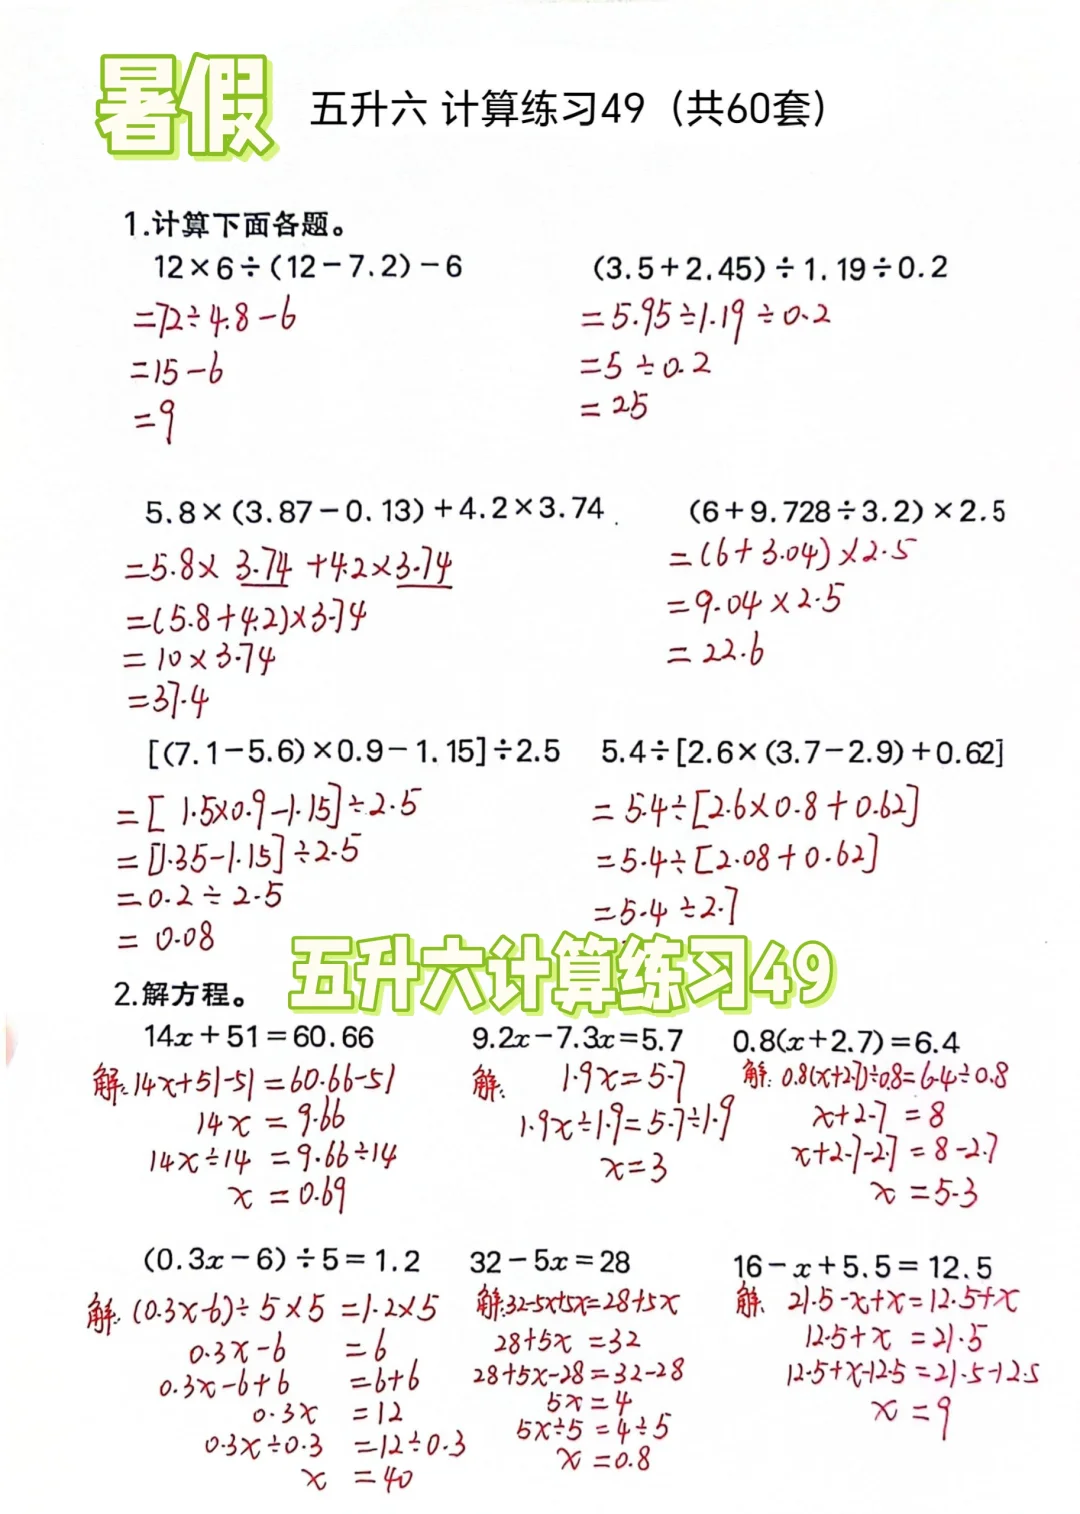 暑假
五升六 计算练习49（共60套）
1.计算下面各题。
12×6÷(12-7.2)-6
=72÷4.8-6
=15-6
=9
(3.5+2.45)÷1.19÷0.2
=5.95÷1.19÷0.2
=5÷0.2
=25
5.8×(3.87-0.13)+4.2×3.74
=5.8×3.74+4.2×3.74
=(5.8+4.2)×3.74
=10×3.74
=37.4
(6+9.728÷3.2)×2.5
=(6+3.04)×2.5
=9.04×2.5
=22.6
[(7.1-5.6)×0.9-1.15]÷2.5
=[1.5×0.9-1.15]÷2.5
=[1.35-1.15]÷2.5
=0.2÷2.5
=0.08
5.4÷[2.6×(3.7-2.9)+0.62]
=5.4÷[2.6×0.8+0.62]
=5.4÷[2.08+0.62]
=5.4÷2.7
五升六计算练习49
2.解方程。
14x+51=60.66
解:14x+51-51=60.66-51
14x=9.66
14x÷14=9.66÷14
x=0.69
9.2x-7.3x=5.7
解:1.9x=5.7
1.9x÷1.9=5.7÷1.9
x=3
0.8(x+2.7)=6.4
解:0.8(x+2.7)÷0.8=6.4÷0.8
x+2.7=8
x+2.7-2.7=8-2.7
x=5.3
(0.3x-6)÷5=1.2
解:(0.3x-6)÷5×5=1.2×5
0.3x-6=6
0.3x-6+6=6+6
0.3x=12
0.3x÷0.3=12÷0.3
x=40
32-5x=28
解:32-5x+5x=28+5x
28+5x=32
28+5x-28=32-28
5x=4
5x÷5=4÷5
x=0.8
16-x+5.5=12.5
解:21.5-x+x=12.5+x
12.5+x=21.5
12.5+x-12.5=21.5-12.5
x=9